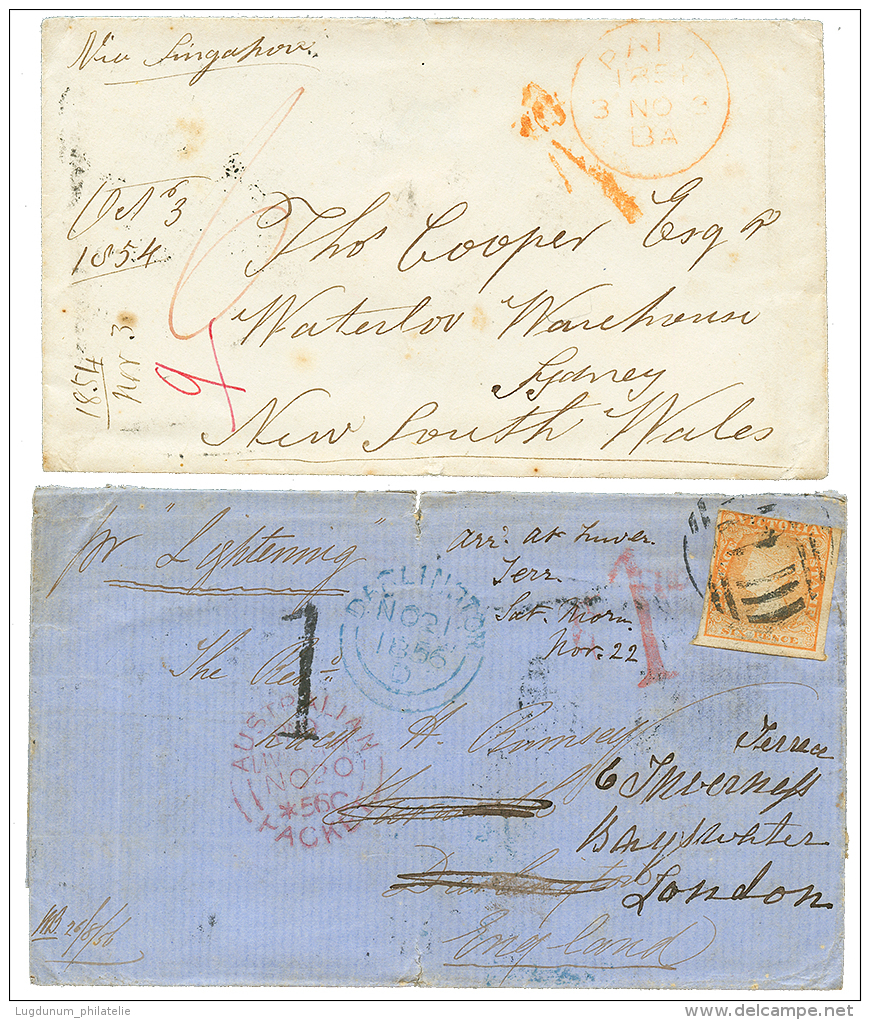 Via Singapore.
PAID
1854
3 NO 3
BA
6
Oct 3
1854
1854
Nov. 3
9
Thos Cooper Esqr
Waterloo Warehouse
Sydney
New South Wales
pr "Lightening"
arr. at Inver.
Terr.
Sat. Morn.
Nov. 22
VICTORIA
SIX PENCE
DARLINGTON
NO 21
1856
D
1
1
The Revd
H. Ramsey
AUSTRALIAN
NO 20
*56C
PACKET
Terrace
6 Inverness
Bayswater
London
England
26/8/56
Lugdunum_philatelie
www.delcampe.net